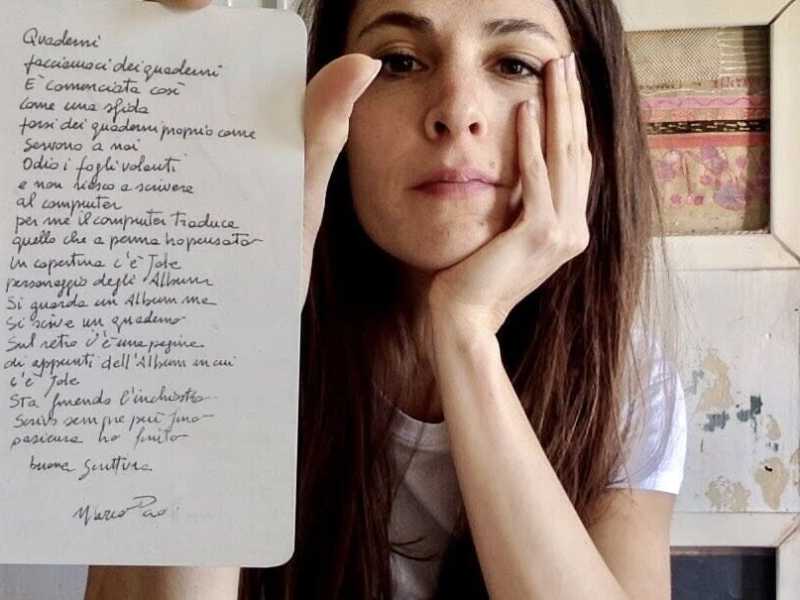 Quaderni
facciamoci dei quaderni
È cominciata così
come una sfida
farsi dei quaderni proprio come
servono a noi
Odio i fogli volanti
e non riesco a scrivere
al computer
per me il computer traduce
quello che a penna ho pensato
In copertina c'è Jole
personaggio degli Album
Si guarda un Album ma
Si scrive un quaderno
Sul retro c'è una pagina
di appunti dell'Album in cui
c'è Jole
Sta finendo l'inchiostro
Scrivo sempre più fino
pasicura ho finito
buona scrittura
Marco